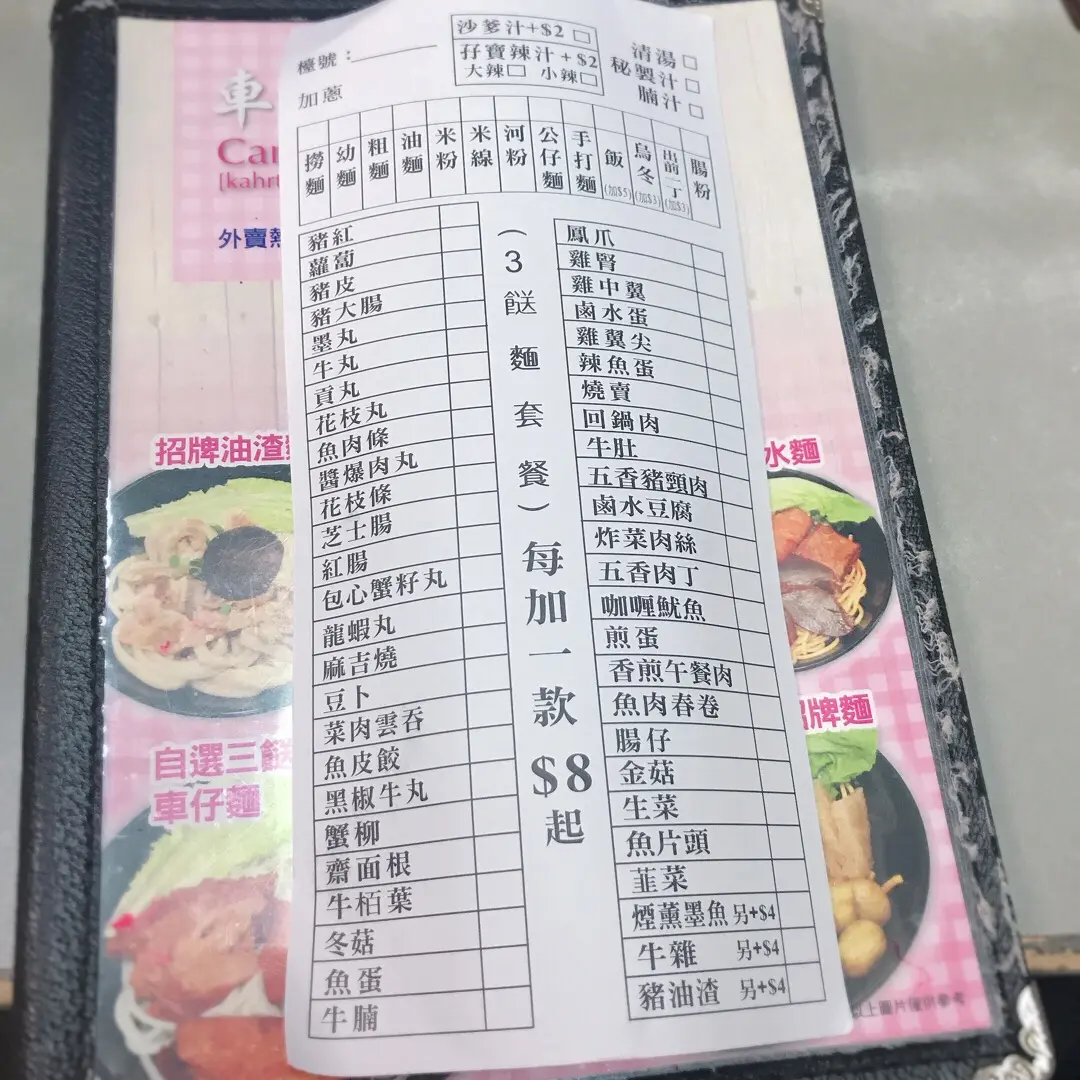 檯號：
加蔥
沙爹汁+$2
孖寶辣汁+$2
大辣 小辣
清湯
秘製汁
腩汁
撈麵
幼麵
粗麵
油麵
米粉
米線
河粉
公仔麵
手打麵
飯(加$5)
烏冬(加$3)
出前一丁(加$3)
腸粉
豬紅
蘿蔔
豬皮
豬大腸
墨丸
牛丸
貢丸
花枝丸
魚肉條
醬爆肉丸
花枝條
芝士腸
紅腸
包心蟹籽丸
龍蝦丸
麻吉燒
豆卜
菜肉雲吞
魚皮餃
黑椒牛丸
蟹柳
齋面根
牛栢葉
冬菇
魚蛋
牛腩
(3餸麵套餐)每加一款$8起
鳳爪
雞腎
雞中翼
鹵水蛋
雞翼尖
辣魚蛋
燒賣
回鍋肉
牛肚
五香豬頸肉
鹵水豆腐
炸菜肉絲
五香肉丁
咖喱魷魚
煎蛋
香煎午餐肉
魚肉春卷
腸仔
金菇
生菜
魚片頭
韮菜
煙薰墨魚 另+$4
牛雜 另+$4
豬油渣 另+$4
車
Car
[kahrt
外賣熱
招牌油渣
水麵
自選三餸
車仔麵
招牌麵
以上圖片僅供參考